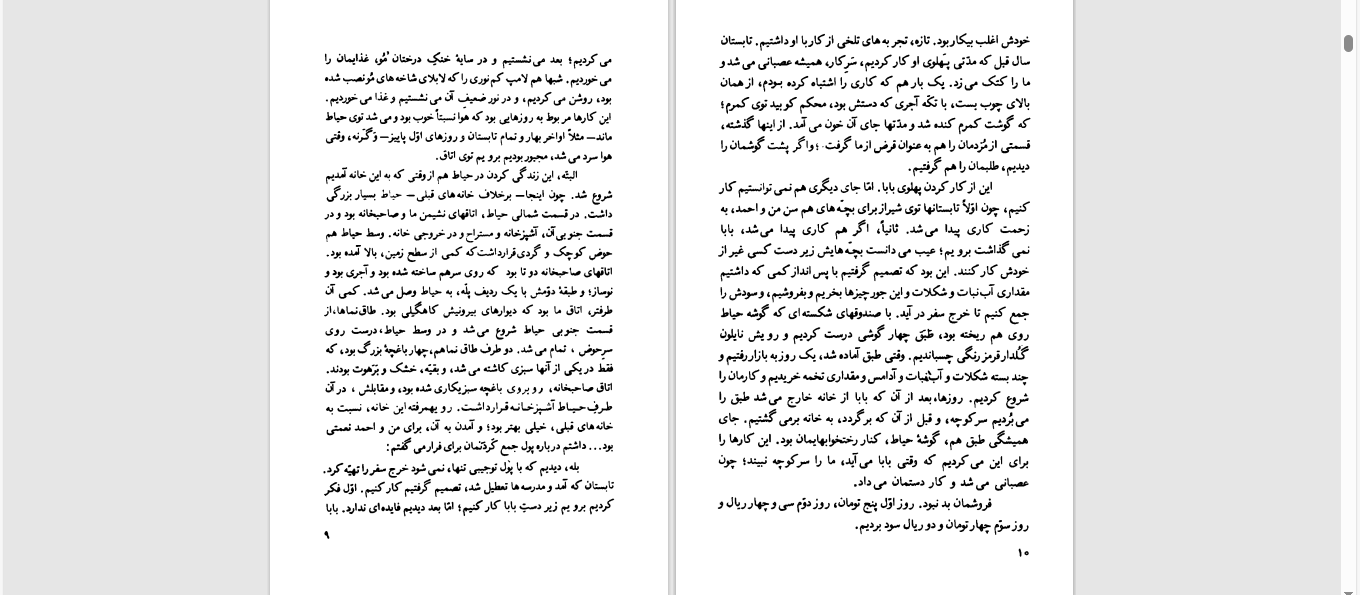 می‌کردیم؛ بعد می‌نشستیم و در سایهٔ خنکِ درختان مُو، غذایمان را
می‌خوردیم. شبها هم لامپ کم‌نوری را که لابلای شاخه‌های مُو نصب شده
بود، روشن می‌کردیم، و در نور ضعیفِ آن می‌نشستیم و غذا می‌خوردیم.
این کارها مربوط به روزهایی بود که هوا نسبتاً خوب بود و می‌شد توی حیاط
ماند— مثلاً اواخر بهار و تمام تابستان و روزهای اوّل پاییز— وگرنه، وقتی
هوا سرد می‌شد، مجبور بودیم برویم توی اتاق.
البتّه، این زندگی کردن در حیاط هم از وقتی که به این خانه آمدیم
شروع شد. چون اینجا— برخلاف خانه‌های قبلی— حیاط بسیار بزرگی
داشت. در قسمت شمالی حیاط، اتاقهای نشیمن ما و صاحبخانه بود و در
قسمت جنوبی آن، آشپزخانه و مستراح و در خروجی خانه. وسط حیاط هم
حوض کوچک و گردی قرار داشت که کمی از سطح زمین، بالا آمده بود.
اتاقهای صاحبخانه دو تا بود که روی سرهم ساخته شده بود و آجری بود و
نوساز؛ و طبقهٔ دوّمش با یک ردیف پلّه، به حیاط وصل می‌شد. کمی آن
طرفتر، اتاق ما بود که دیوارهای بیرونیش کاهگیلی بود. طاق‌نماها، از
قسمت جنوبی حیاط شروع می‌شد و در وسط حیاط، درست روی
سرِ حوض، تمام می‌شد. دو طرف طاق نماهم، چهار باغچهٔ بزرگ بود، که
فقط در یکی از آنها سبزی کاشته می‌شد، و بقیّه، خشک و بَرّهوت بودند.
اتاق صاحبخانه، روبروی باغچه سبزیکاری شده بود، و مقابلش، در آن
طرفِ حیاط آشپزخانه قرار داشت. رویهمرفته این خانه، نسبت به
خانه‌های قبلی، خیلی بهتر بود؛ و آمدن به آن، برای من و احمد نعمتی
بود... داشتم درباره پول جمع کَردَنمان برای فرار می‌گفتم:
بله، دیدیم که با پول توجیبی تنها، نمی‌شود خرج سفر را تهیّه کرد.
تابستان که آمد و مدرسه‌ها تعطیل شد، تصمیم گرفتیم کار کنیم. اوّل فکر
کردیم برویم زیر دستِ بابا کار کنیم؛ امّا بعد دیدیم فایده‌ای ندارد. بابا
۹
خودش اغلب بیکار بود. تازه، تجربه‌های تلخی از کار با او داشتیم. تابستان
سال قبل که مدّتی پهلوی او کار کردیم، سَرِکار، همیشه عصبانی می‌شد و
ما را کتک می‌زد. یک بار هم که کاری را اشتباه کرده بودم، از همان
بالای چوب بست، با تکّه آجری که دستش بود، محکم کوبید توی کمرم؛
که گوشت کمرم کنده شد و مدّتها جای آن خون می‌آمد. از اینها گذشته،
قسمتی از مُزدمان را هم به عنوان قرض از ما گرفت؛ و اگر پشت گوشمان را
دیدیم، طلبمان را هم گرفتیم.
این از کار کردن پهلوی بابا. امّا جای دیگری هم نمی‌توانستیم کار
کنیم، چون اوّلاً تابستانها توی شیراز برای بچّه‌های هم سن من و احمد، به
زحمت کاری پیدا می‌شد. ثانیاً، اگر هم کاری پیدا می‌شد، بابا
نمی‌گذاشت برویم؛ عیب می‌دانست بچّه‌هایش زیر دست کسی غیر از
خودش کار کنند. این بود که تصمیم گرفتیم با پس انداز کمی که داشتیم
مقداری آب‌نبات و شکلات و این جور چیزها بخریم و بفروشیم، و سودش را
جمع کنیم تا خرج سفر در آید. با صندوقهای شکسته‌ای که گوشه حیاط
روی هم ریخته بود، طَبَق چهار گوشی درست کردیم و رویش نایلون
گُلدار قرمز رنگی چسباندیم. وقتی طبق آماده شد، یک روز به بازار رفتیم و
چند بسته شکلات و آب‌نبات و آدامس و مقداری تخمه خریدیم و کارمان را
شروع کردیم. روزها، بعد از آن که بابا از خانه خارج می‌شد طبق را
می‌بُردیم سرکوچه، و قبل از آن که برگردد، به خانه برمی‌گشتیم. جای
همیشگی طبق هم، گوشهٔ حیاط، کنار رختخوابهایمان بود. این کارها را
برای این می‌کردیم که وقتی بابا می‌آید، ما را سرکوچه نبیند؛ چون
عصبانی می‌شد و کار دستمان می‌داد.
فروشمان بد نبود. روز اوّل پنج تومان، روز دوّم سی و چهار ریال و
روز سوّم چهار تومان و دو ریال سود بردیم.
۱۰